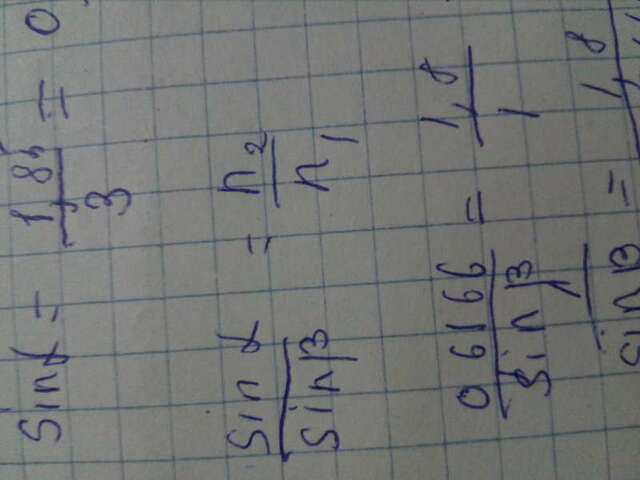 sin α = 1 85 / 3 = 0,
sin α / sin β = n₂ / n₁
0 6166 / sin β = 1,8 / 1
1 / sin β = 1,8